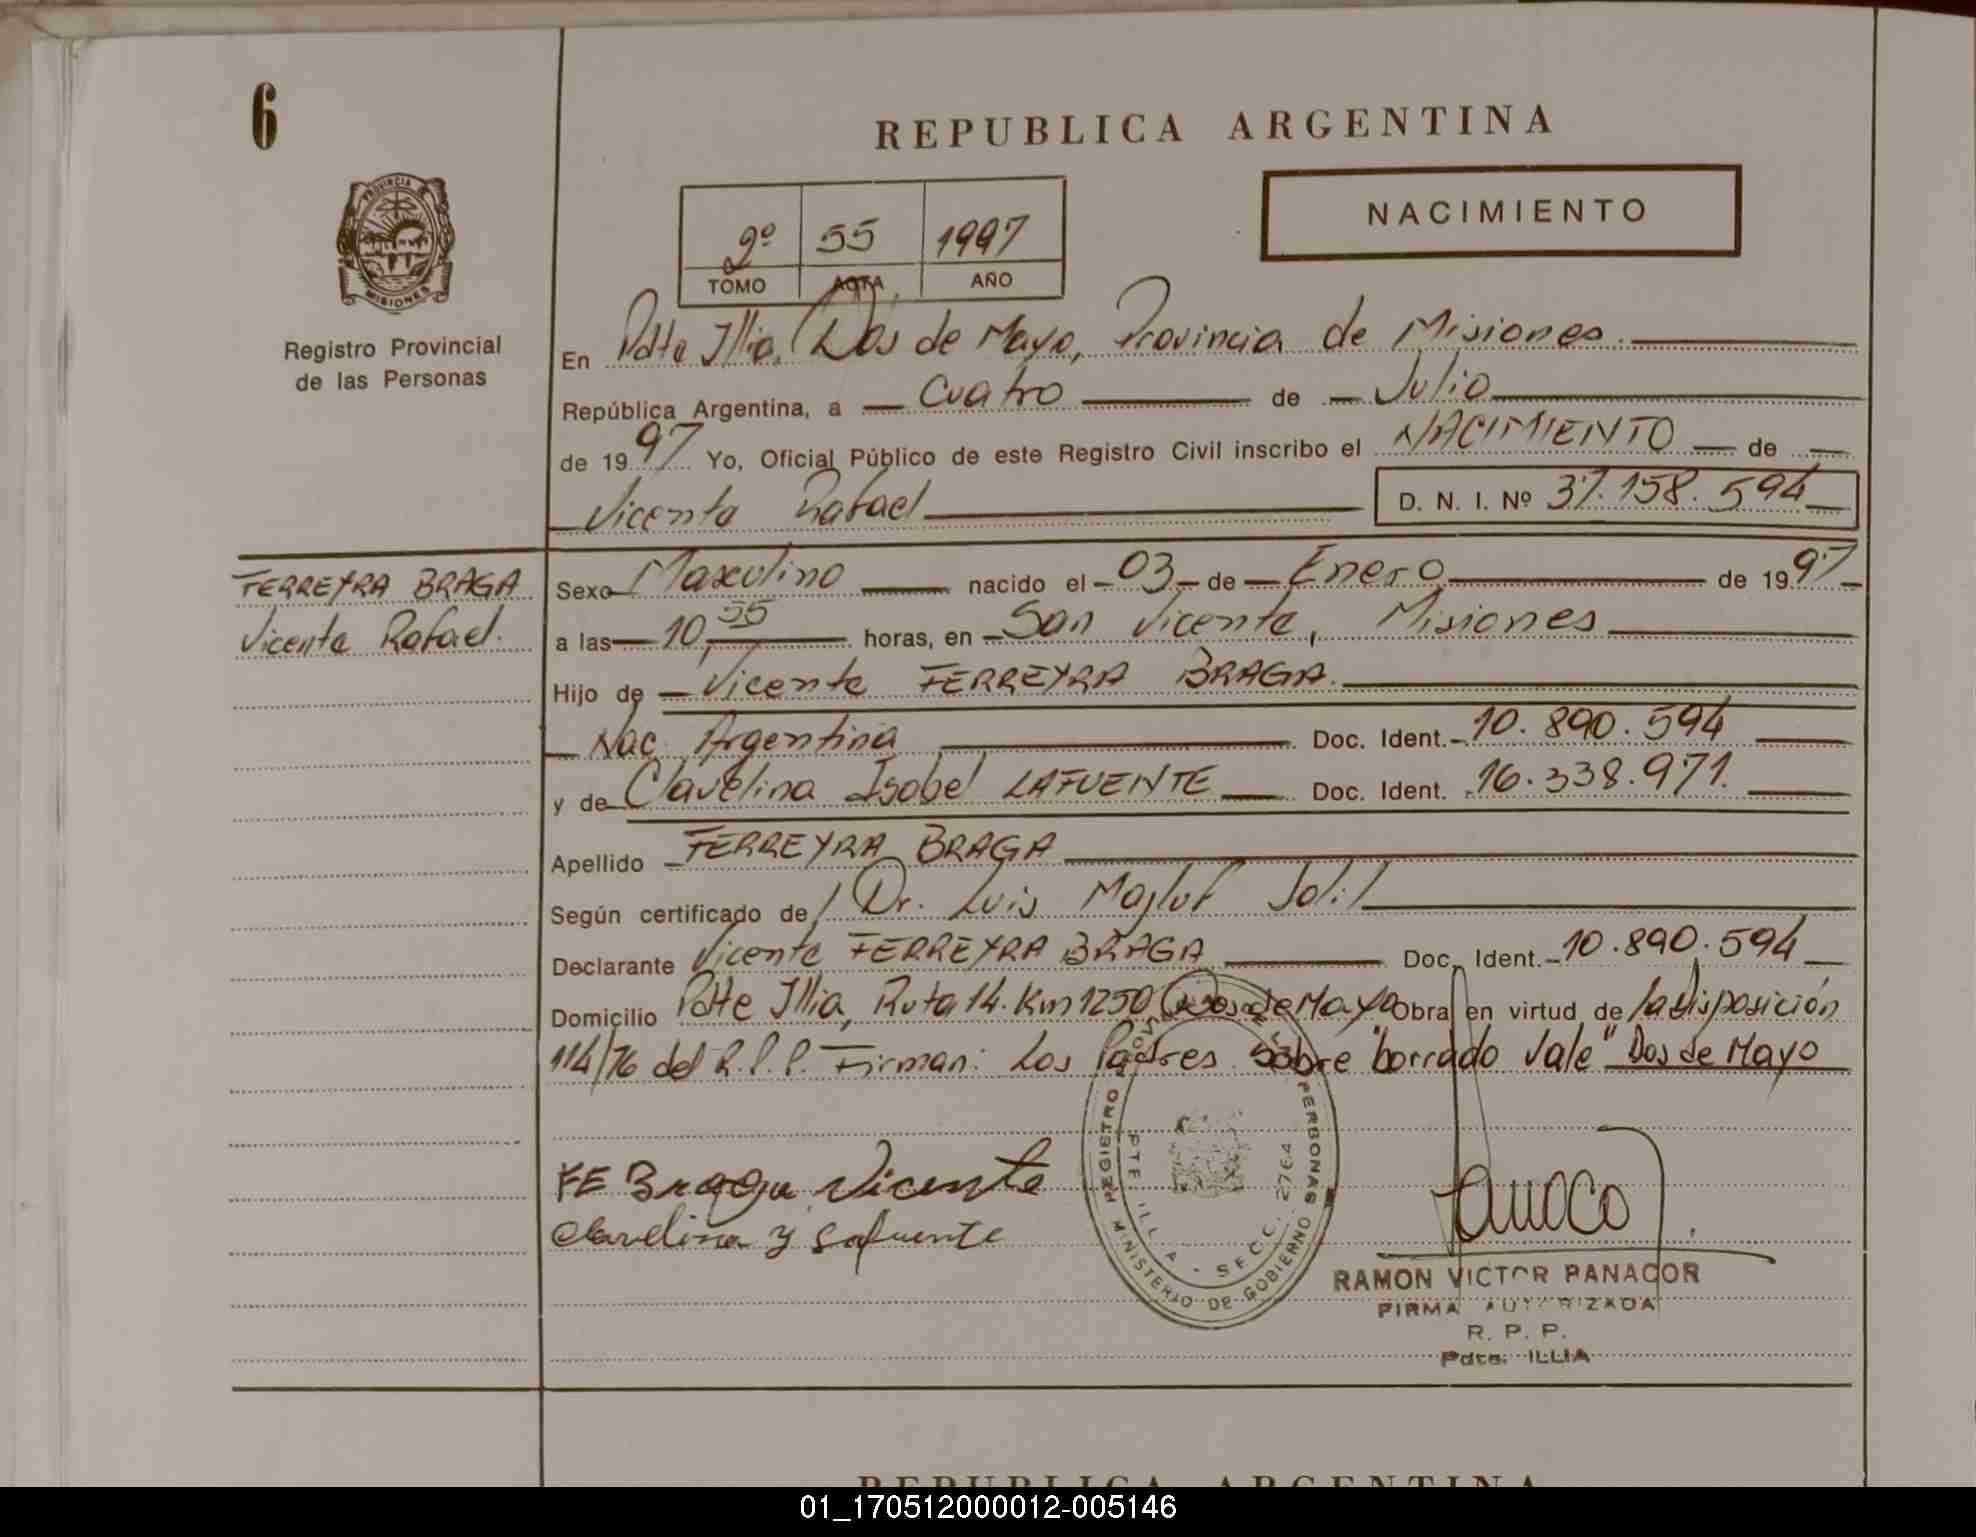 6
REPUBLICA ARGENTINA
NACIMIENTO
2º 55 1997
TOMO ACTA AÑO
PROVINCIA DE
MISIONES
Registro Provincial
de las Personas
En Pdte Illia, Dos de Mayo, Provincia de Misiones
República Argentina, a Cuatro de Julio
de 1997 Yo, Oficial Público de este Registro Civil inscribo el NACIMIENTO de
Vicente Rafael D. N. I. Nº 37.158.594
FERREYRA BRAGA
Vicente Rafael.
Sexo Masculino nacido el 03 de Enero de 1997
a las 10,55 horas, en San Vicente, Misiones
Hijo de Vicente FERREYRA BRAGA.
Nac. Argentina Doc. Ident. 10.890.594
y de Clavelina Isabel LAFUENTE Doc. Ident. 16.338.971.
Apellido FERREYRA BRAGA
Según certificado de Dr. Luis Majluf Jalil
Declarante Vicente FERREYRA BRAGA Doc. Ident. 10.890.594
Domicilio Pdte Illia, Ruta 14. Km 1250 Dos de Mayo Obra en virtud de la disposición
114/76 del R.P.P. Firman: Los Padres. Sobre "borrado Vale" Dos de Mayo
FE Braga Vicente
Clavelina y Lafuente
REGISTRO PERSONAS
PTE ILLIA - SECC. 2764
MINISTERIO DE GOBIERNO
RAMON VICTOR PANACOR
FIRMA AUTORIZADA
R. P. P.
Pdte. ILLIA
REPUBLICA ARGENTINA
01_170512000012-005146